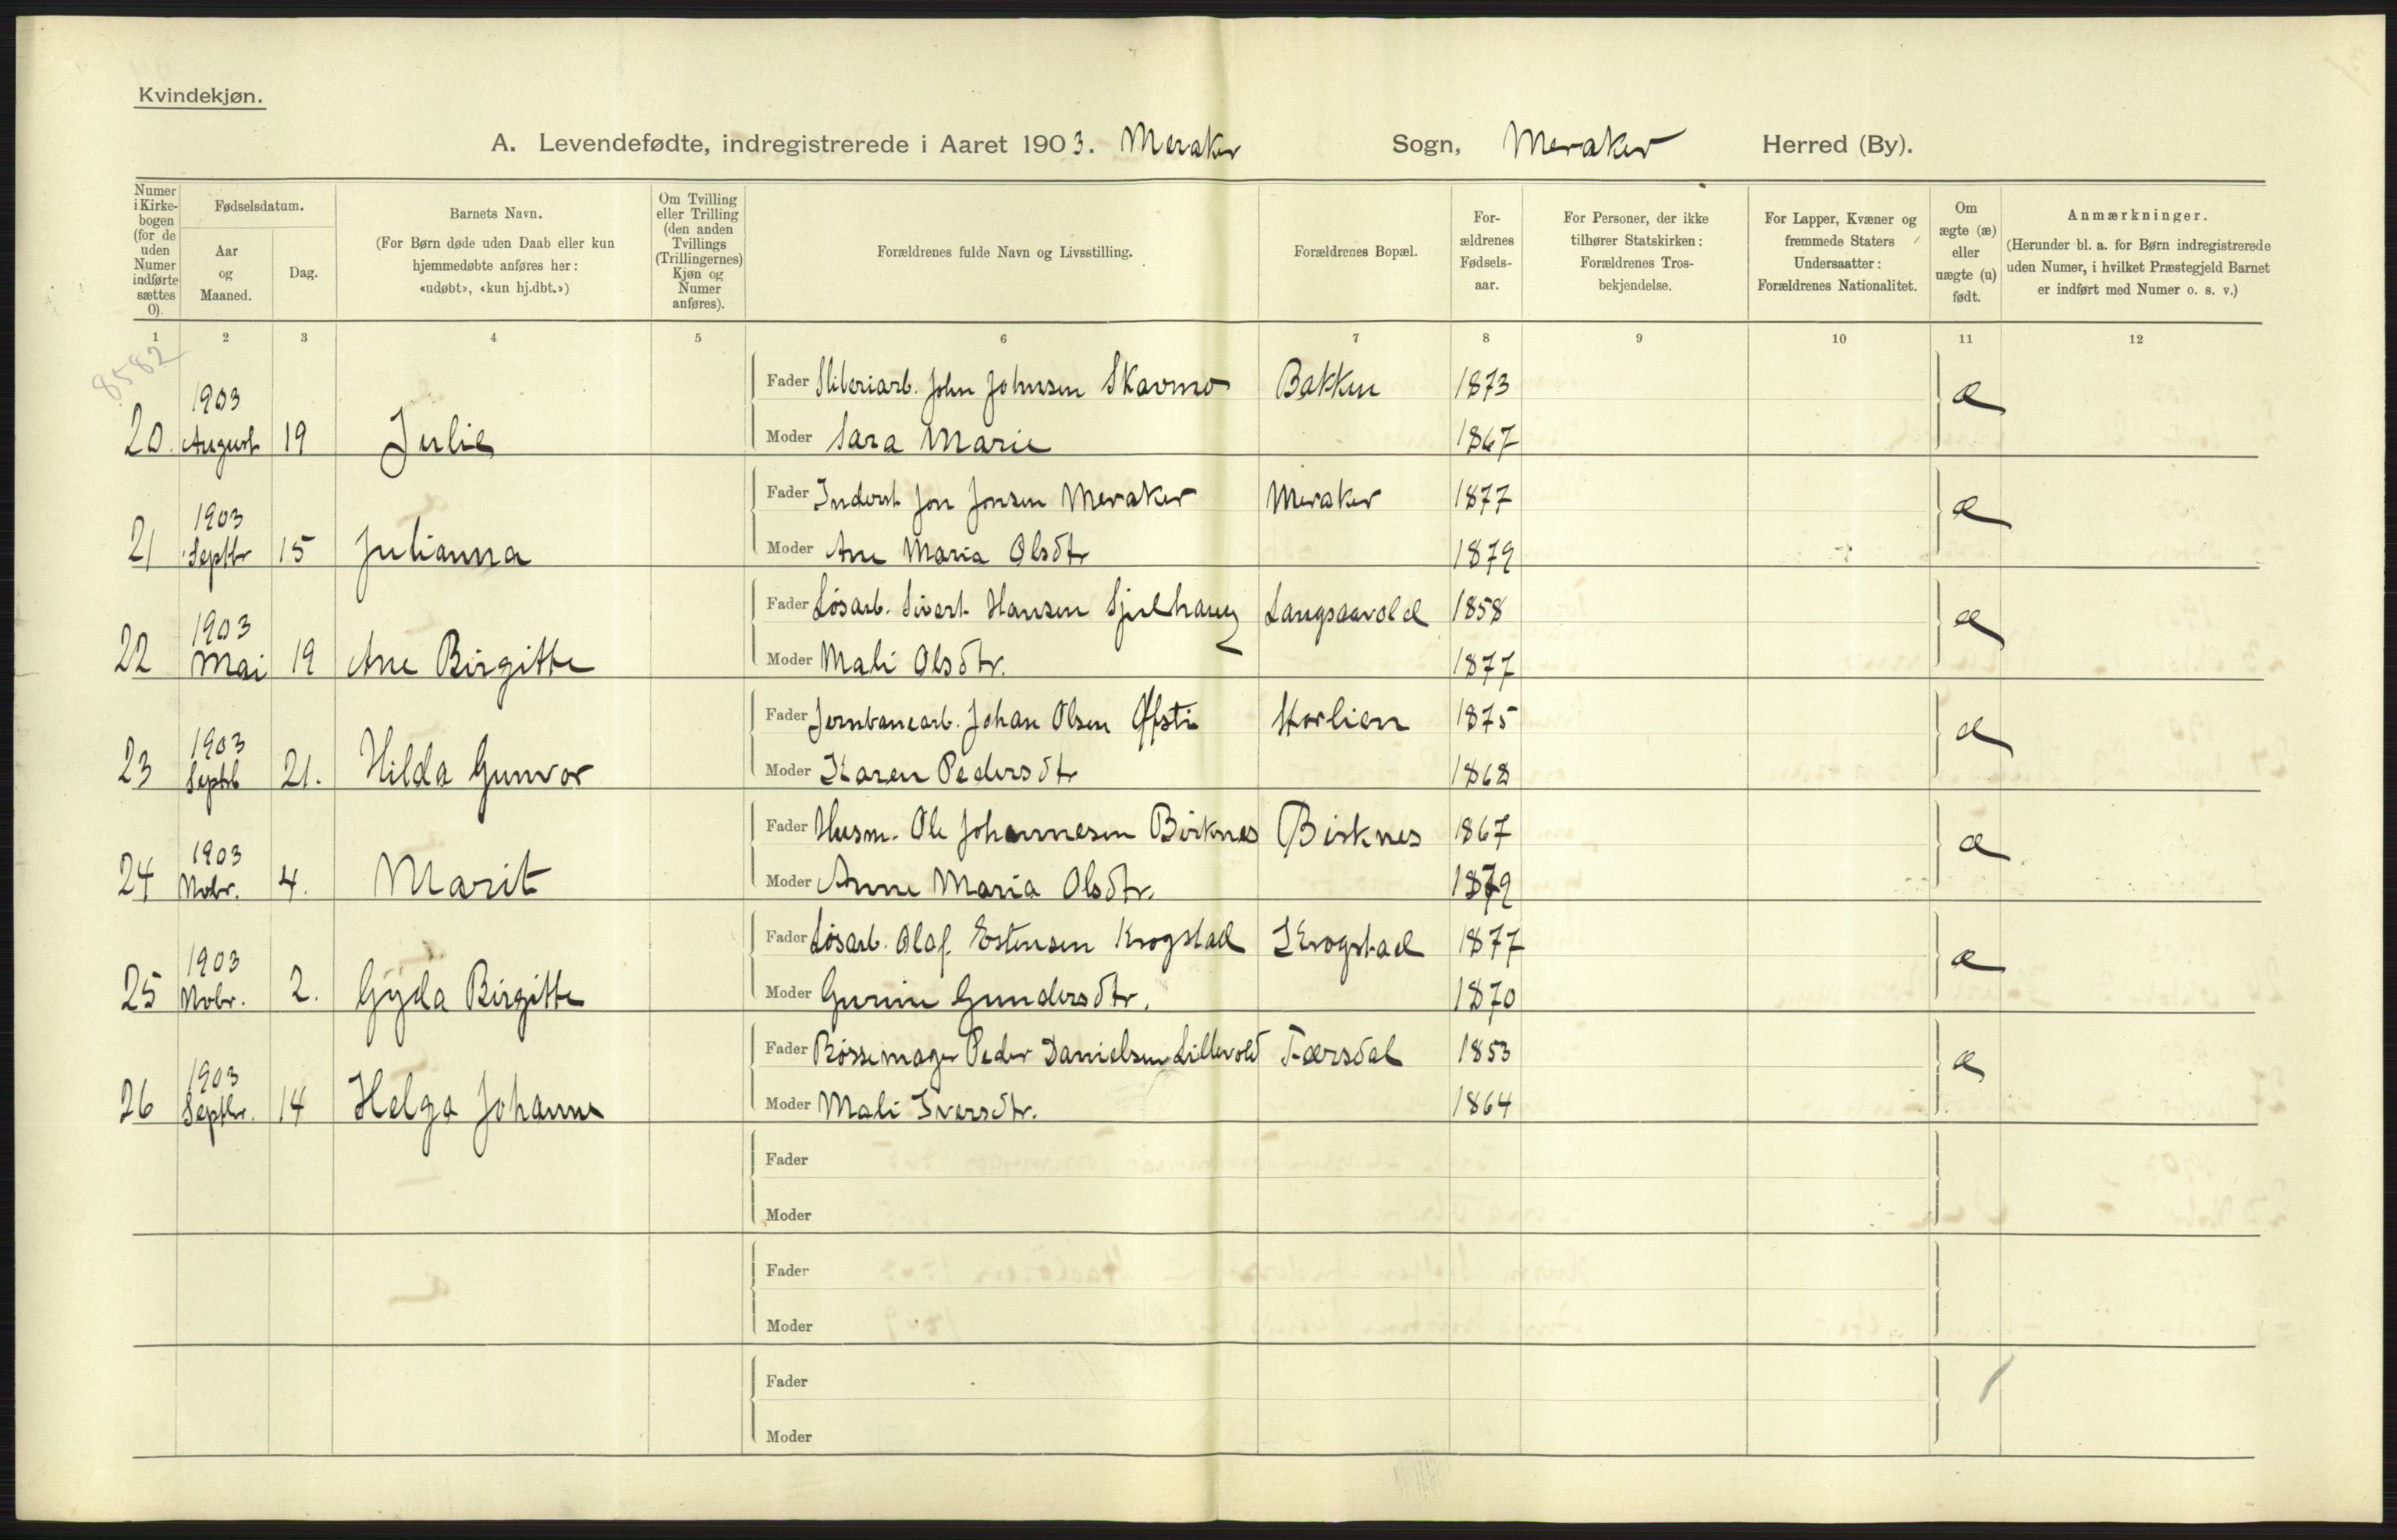 Kvindekjøn.
A. Levendefødte, indregistrerede i Aaret 1903. Meraker Sogn, Meraker Herred (By).
Numer i Kirke-bogen (for de uden Numer indførte sættes 0).
Fødselsdatum.
Aar og Maaned.
Dag.
Barnets Navn.
(For Børn døde uden Daab eller kun
hjemmedøbte anføres her:
«udøbt», «kun hj.dbt.»)
Om Tvilling
eller Trilling
(den anden
Tvillings
(Trillingernes)
Kjøn og
Numer
anføres).
Forældrenes fulde Navn og Livsstilling.
Forældrenes Bopæl.
For-
ældrenes
Fødsels-
aar.
For Personer, der ikke
tilhører Statskirken:
Forældrenes Tros-
bekjendelse.
For Lapper, Kvæner og
fremmede Staters
Undersaatter:
Forældrenes Nationalitet.
Om
ægte (æ)
eller
uægte (u)
født.
Anmærkninger.
(Herunder bl. a. for Børn indregistrerede
uden Numer, i hvilket Præstegjeld Barnet
er indført med Numer o. s. v.)
1 2 3 4 5 6 7 8 9 10 11 12
8582
Fader Sliberiarb. John Johnsen Skavmo Bakken 1873 æ
20. 1903 August 19 Julie Moder Sara Marie 1867
Fader Inderst Jon Jonsen Meraker Meraker 1877 æ
21 1903 Septbr 15 Julianna Moder Ane Maria Olsdtr 1879
Fader Løsarb. Sivert Hansen Sjulhaug Langsaavold 1858 æ
22 1903 Mai 19 Ane Birgitte Moder Mali Olsdtr. 1877
Fader Jernbanearb. Johan Olsen Øfsti Storlien 1875 æ
23 1903 Septb 21. Hilda Gunvor Moder Karen Pedersdtr 1868
Fader Husm. Ole Johannesen Birknes Birknes 1867 æ
24 1903 Nobr. 4. Marit Moder Anne Maria Olsdtr. 1879
Fader Løsarb. Olaf Estensen Krogstad Krogstad 1877 æ
25 1903 Nobr. 2. Gyda Birgitte Moder Gurine Gundersdtr. 1870
Fader Bøssemager Peder Danielsen Lillevold Færsdal 1853 æ
26 1903 Septbr. 14 Helga Johanne Moder Mali Iversdtr. 1864
Fader
Moder
Fader
Moder
Fader
Moder